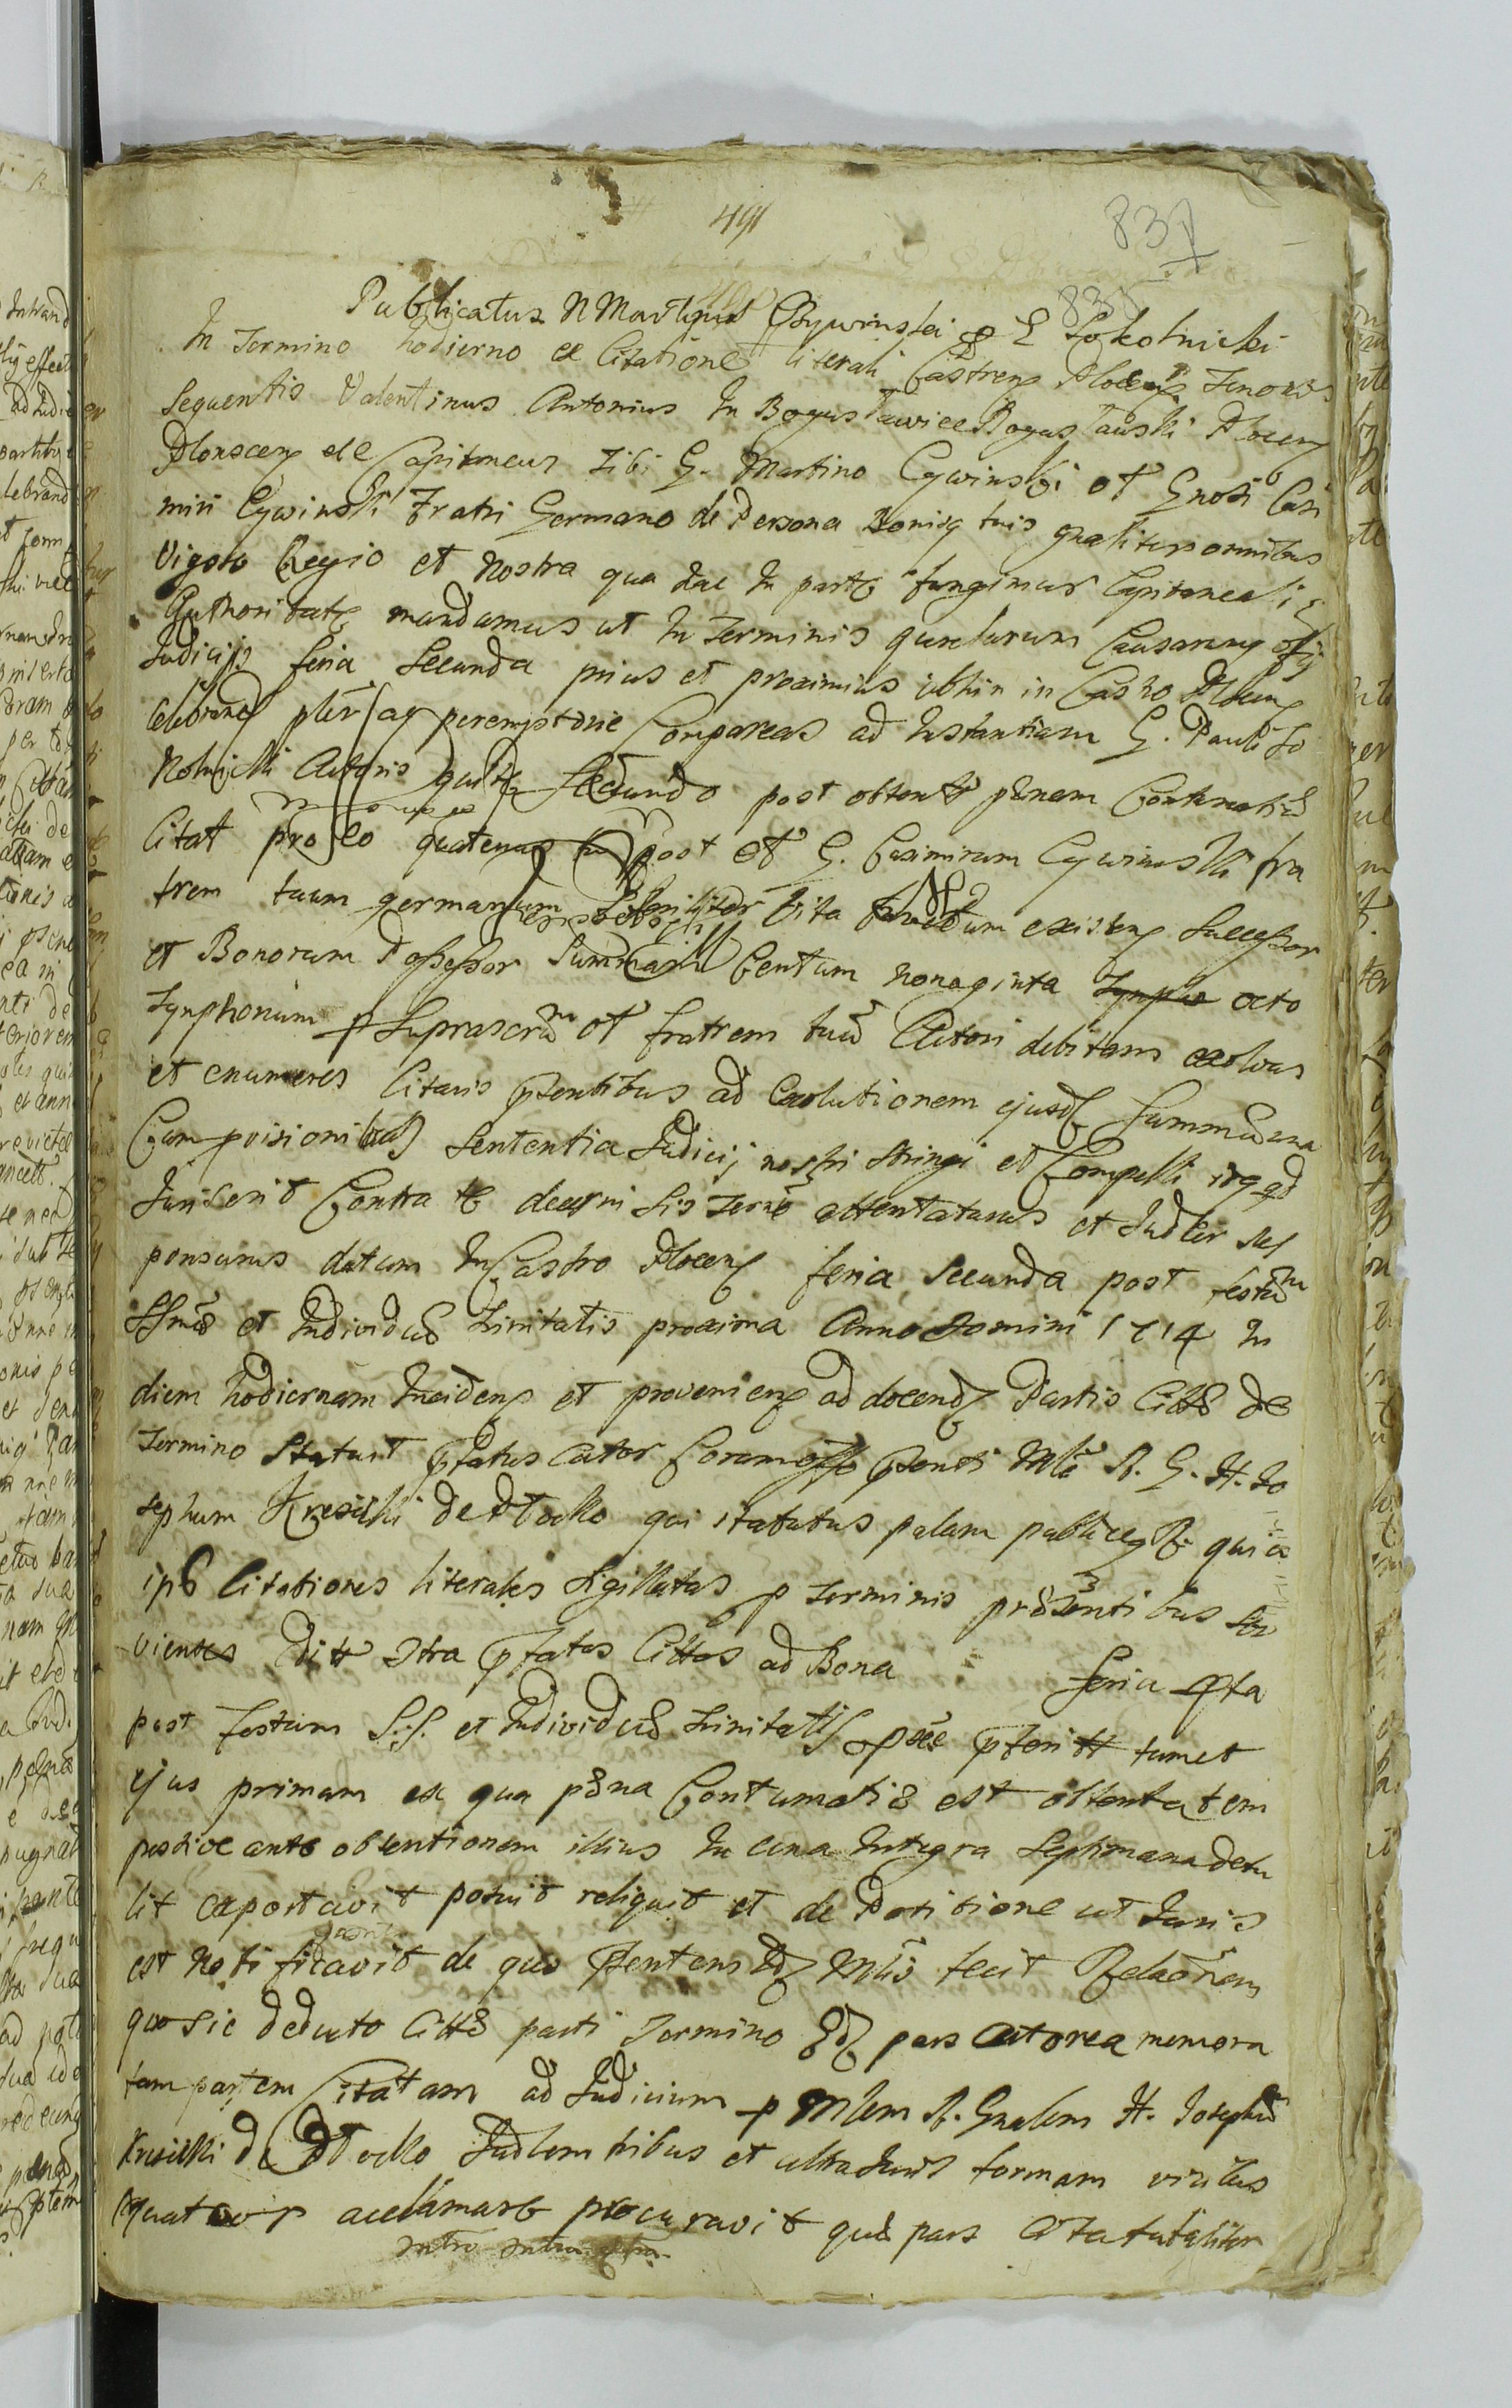 491
837
835
Publicatus N Martinus Cywinski p G Sokolnicki
In Termino hodierno ex Citatione literali Castren Plocen Tenoris
sequentis Valentinus Antonius In Bogusławice Bogusławski Plocen
Plonscen etc Capitaneus Tibi G. Martino Cywinski ol Gnosi Casi
miri Cywinski Fratri Germano de Persona Bonisq tuis gnaliter omnibus
Vigore Regio et Nostra qua hac In parte fungimur Capitaneali
Authoritate mandamus ut In Terminis querelarum Causarum
Judicijs feria Secunda prius et proximius ibhin in Castro Plocen
celebrand pler ac peremptorie Compareas ad Instantiam G. Pauli So
kolnicki Actoris qui te secundo post obtent penam Contumatia
Citat pro eo quatenus post ol G. Casimirum Cywinski fra
trem tuum germanum steriliter vita functum existen Successor
et Bonorum Possessor Summam Centum nonaginta octo
Tynphonum p Suprascrm ol fratrem tuum Actori debitam exolvas
et enumeres Citaris pntibus ad Exolutionem ejusd summa una
Cum Sententia Judicij nostri stringi et Compelli itq qd
Juris erit Contra te decerni Sis Terio attentaturus et Judler res
ponsurus datum In Castro Plocen feria Secunda post festum
SSma et Individua Trinitatis proxima Anno Domini 1714 In
diem hodiernam Inciden et provenien ad docend Partis Citta de
Termino Statuit pfatus Actor Coram offo pnti Mle R. G. H. Jo
sephum Kresicki de Płocko qui statutus palam publiceq R. quia
ipse Citationes literales sigillatas p Terminis prasentibus ser
vientes ditt ztra pfatas Cittas ad Bona feria qta
post festum S.S. et Individua Trinitatis pte tamet
ejus primam ex qua pana Contumatia est obtenta tem
pestive ante obtentionem illius In una Integra Septimana detu
lit exportavit posuit reliquit et de Positione ut Juris
est notificavit de quo pntens Id Mlis fecit Relaonem
quo sic deducto Citta parti Termino pars Actorea memora
tam partem Citatam ad Judicium p Mlem R. Gnalem H. Josephum
Kresicki de Płocko Judlem tribus et ultra Juris formam vicibus
quatuor acclamare procuravit qua pars
intro intro intro